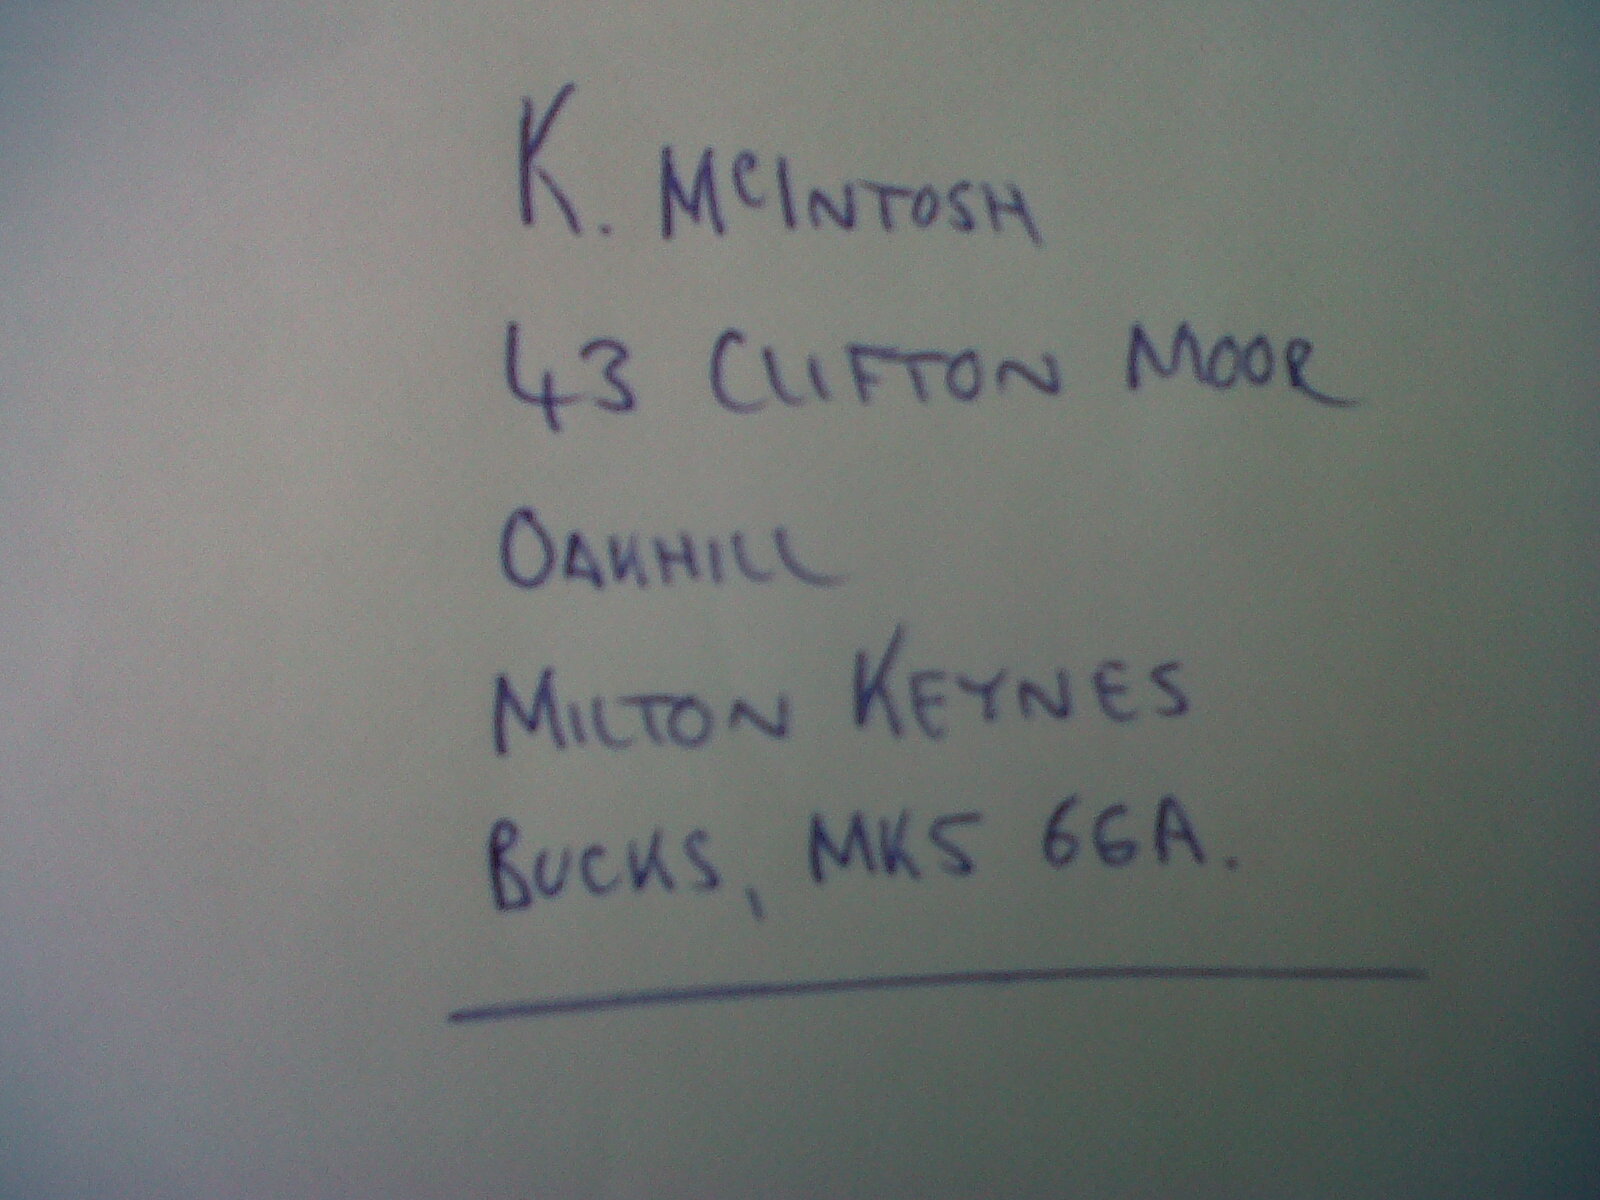 K. McINTOSH
43 CLIFTON MOOR
OAKHILL
MILTON KEYNES
BUCKS, MK5 6GA.